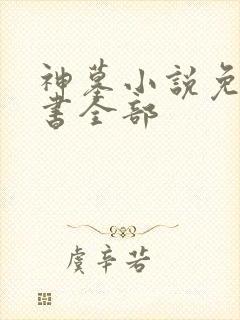 神墓小说免
书全部
虞辛若